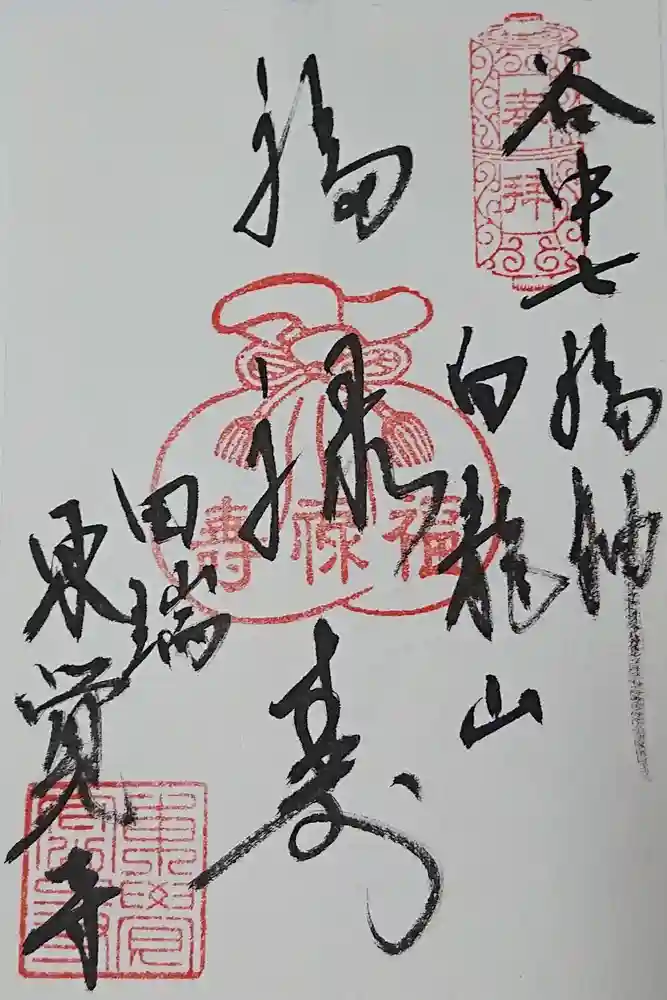 奉拝
谷中七福神
白龍山
福禄寿
福禄寿
田端
東覚寺